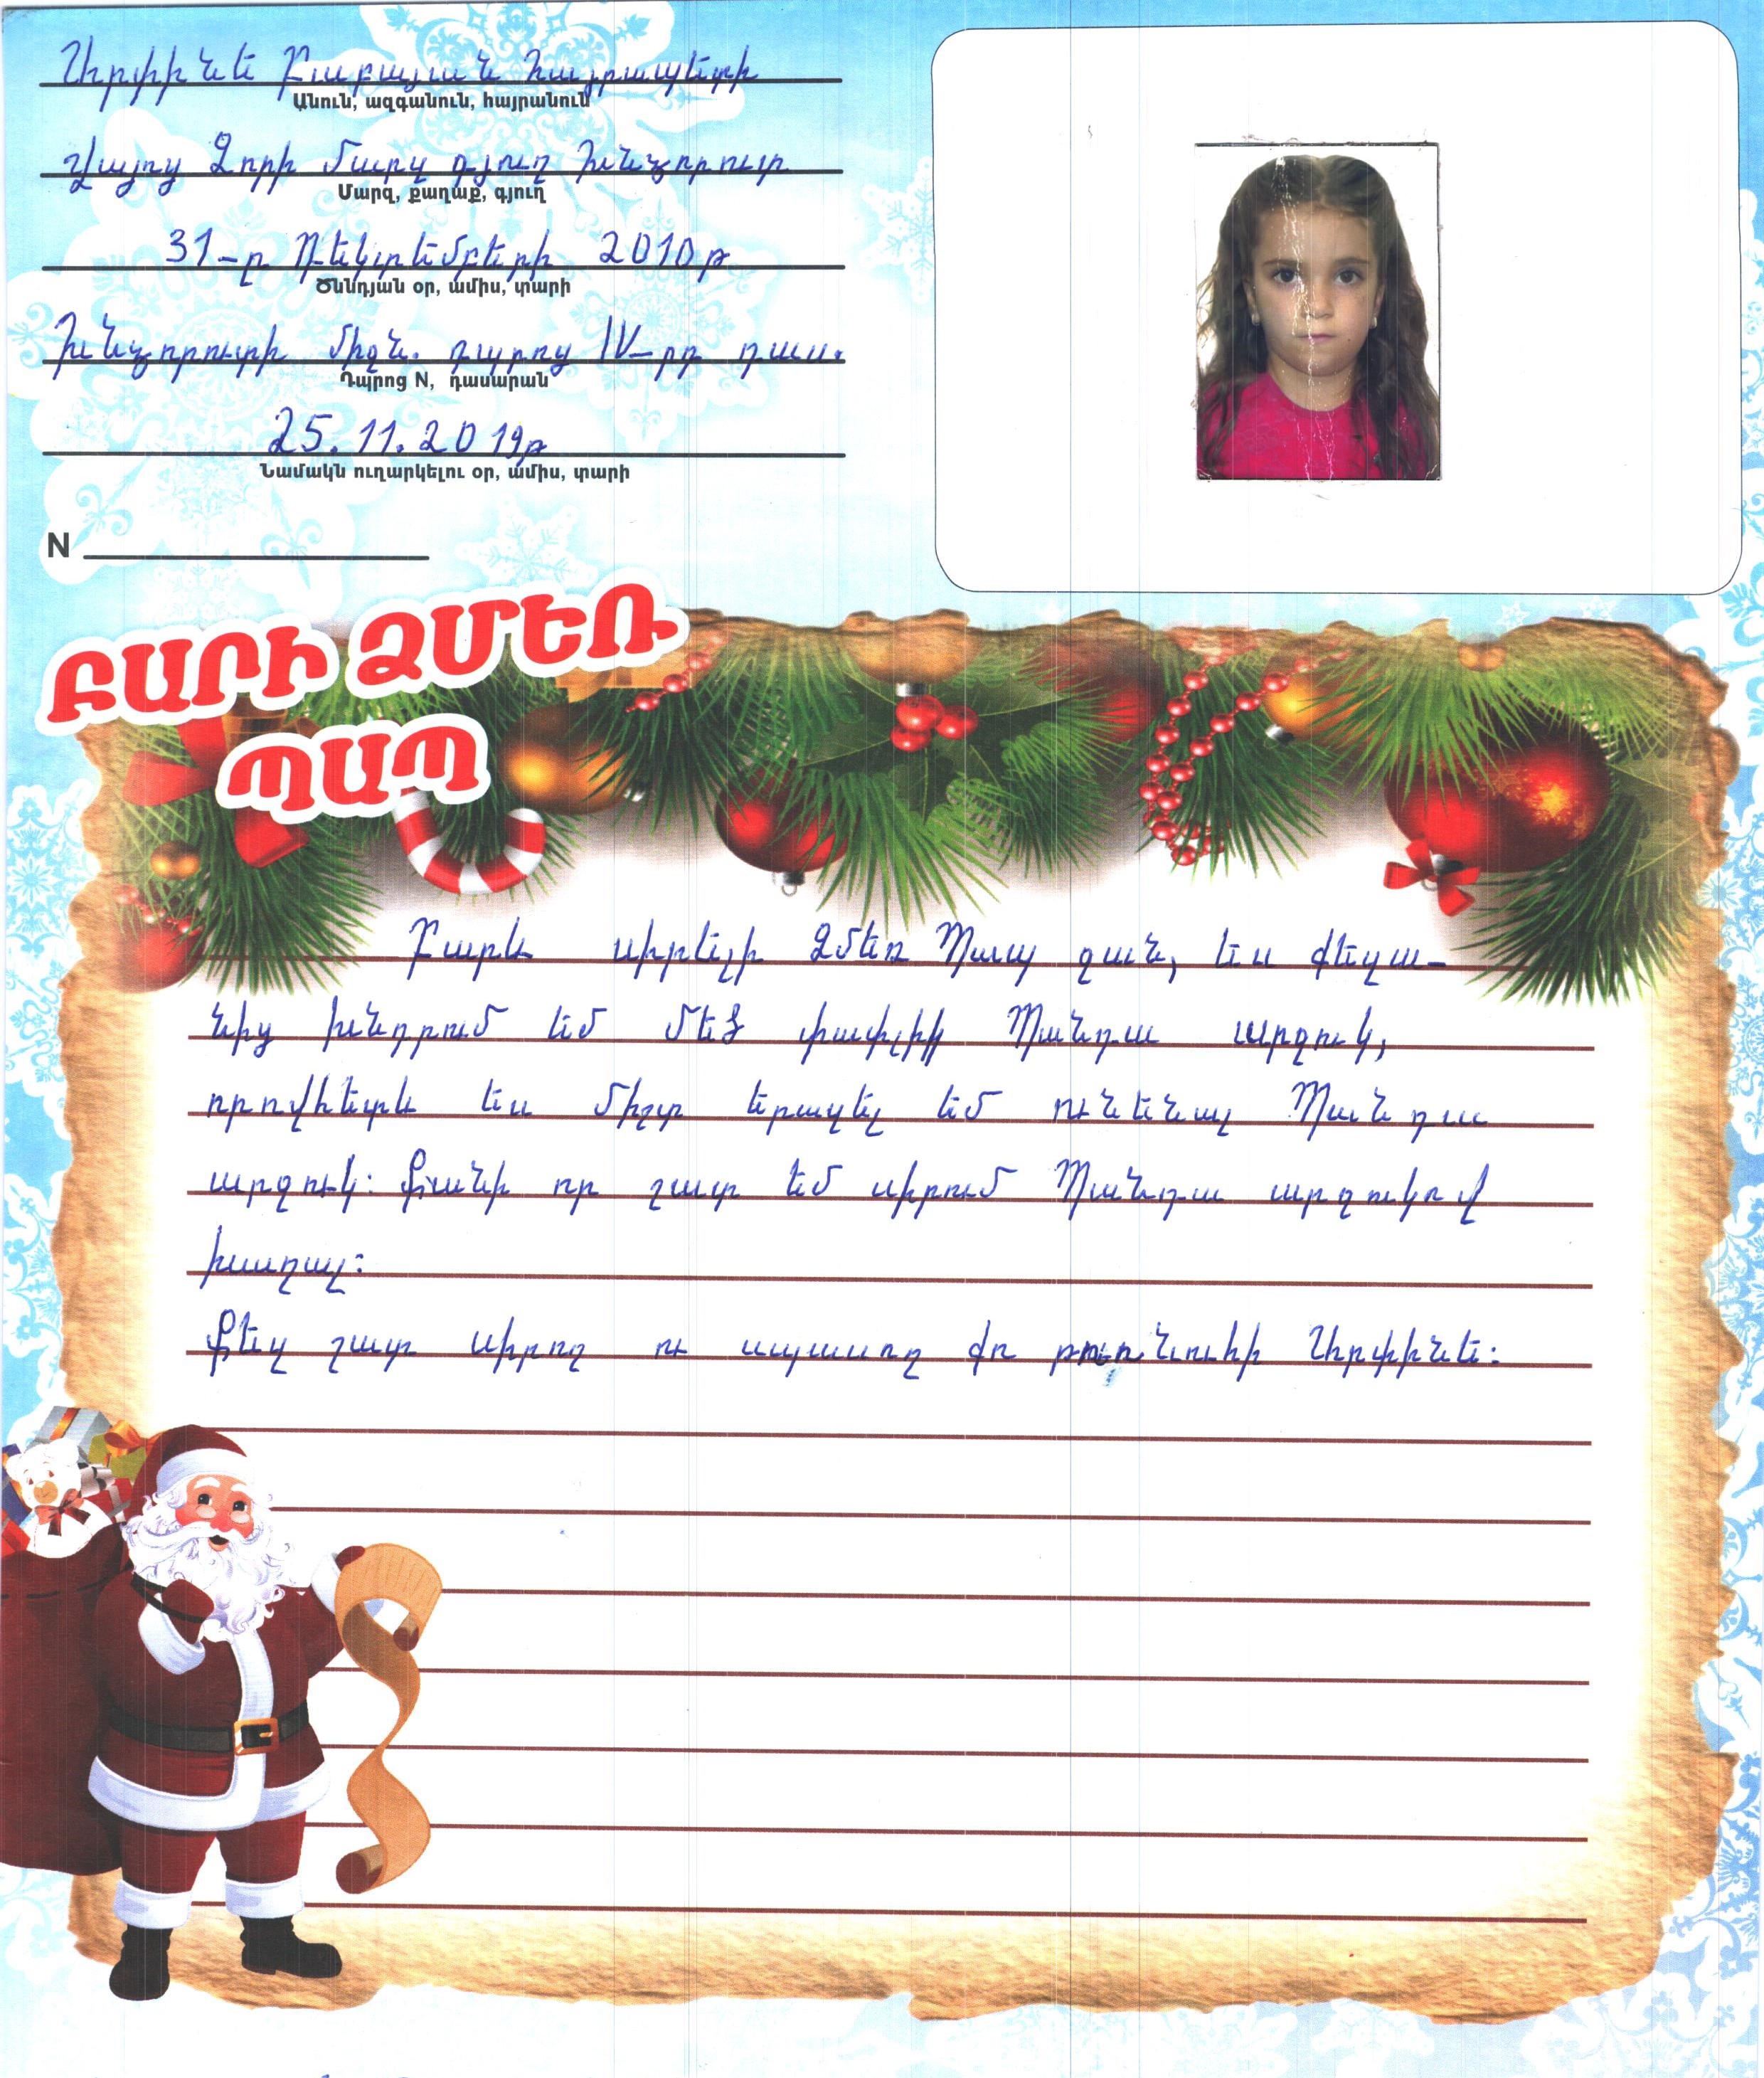 Սերփինե Բաբայան Հայրապետի
Անուն, ազգանուն, հայրանուն
Վայոց Ձորի մարզ գյուղ Խնձորուտ
Մարզ, քաղաք, գյուղ
31-ը Դեկտեմբերի 2010թ
Ծննդյան օր, ամիս, տարի
Խնձորուտի միջն. դպրոց IV-րդ դաս.
Դպրոց N, դասարան
25.11.2019թ
Նամակն ուղարկելու օր, ամիս, տարի
N
ԲԱՐԻ ՁՄԵՌ
ՊԱՊ
Բարև սիրելի Ձմեռ Պապ ջան, ես քեզա-
նից խնդրում եմ մեծ փափլիկ Պանդա արջուկ,
որովհետև ես միշտ երազել եմ ունենալ Պանդա
արջուկ: Քանի որ շատ եմ սիրում Պանդա արջուկով
խաղալ:
Քեզ շատ սիրող ու սպասող քո թոռնուհի Սերփինե: